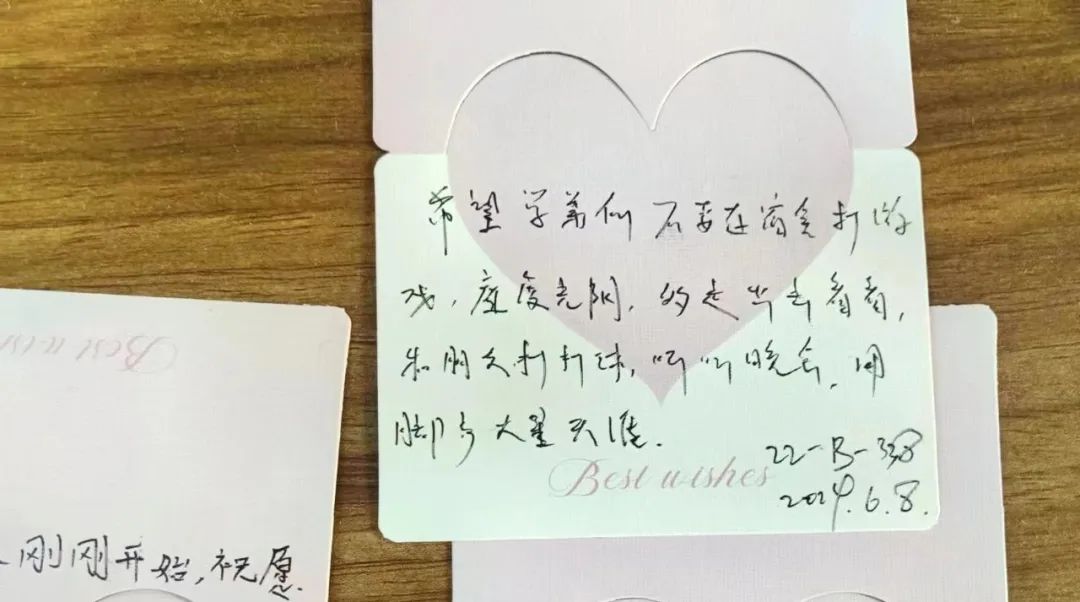 希望学弟们不要在宿舍打游
戏，虚度光阴，多走出去看看，
和朋友打打球，听听晚会，用
脚步丈量天涯.
Best wishes
22-B-338
2024.6.8.
Best wish
刚刚开始，祝愿